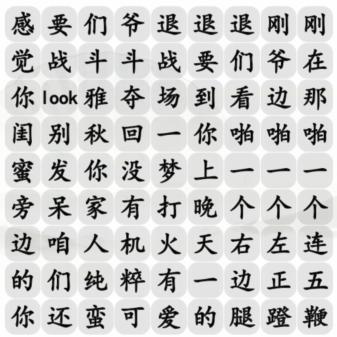 感要们爷退退退刚刚
觉战斗斗战要们爷在
你look雅夺场到看边那
闺别秋回一你啪啪啪
蜜发你没梦上一一一
旁呆家有打晚个个个
边咱人机火天右左连
的们纯粹有一边正五
你还蛮可爱的腿蹬鞭